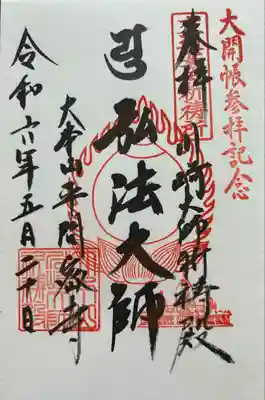 大開帳参拝記念
奉拝
川崎大師祈祷殿
弘法大師
大本山平間寺
令和六年五月二十日